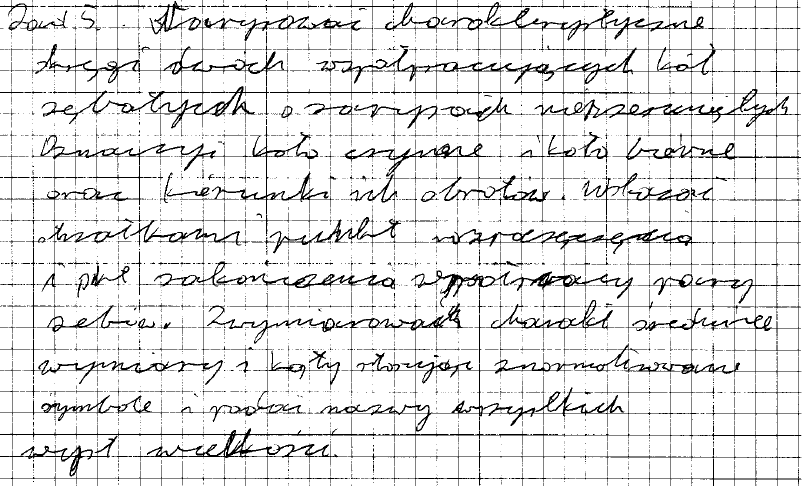 Zad 5. Narysować charakterystyczne
okręgi dwóch współpracujących kół
zębatych o zarysach nieprzesuniętych
Oznaczyć koło czynne i koło bierne
oraz kierunki ich obrotów. Wskazać
strzałkami punkt rozpoczęcia
i pkt zakończenia współpracy pary
zębów. Zwymiarować charakt średnice
wymiary i kąty stosując znormalizowane
symbole i podać nazwy wszystkich
wyst wielkości.